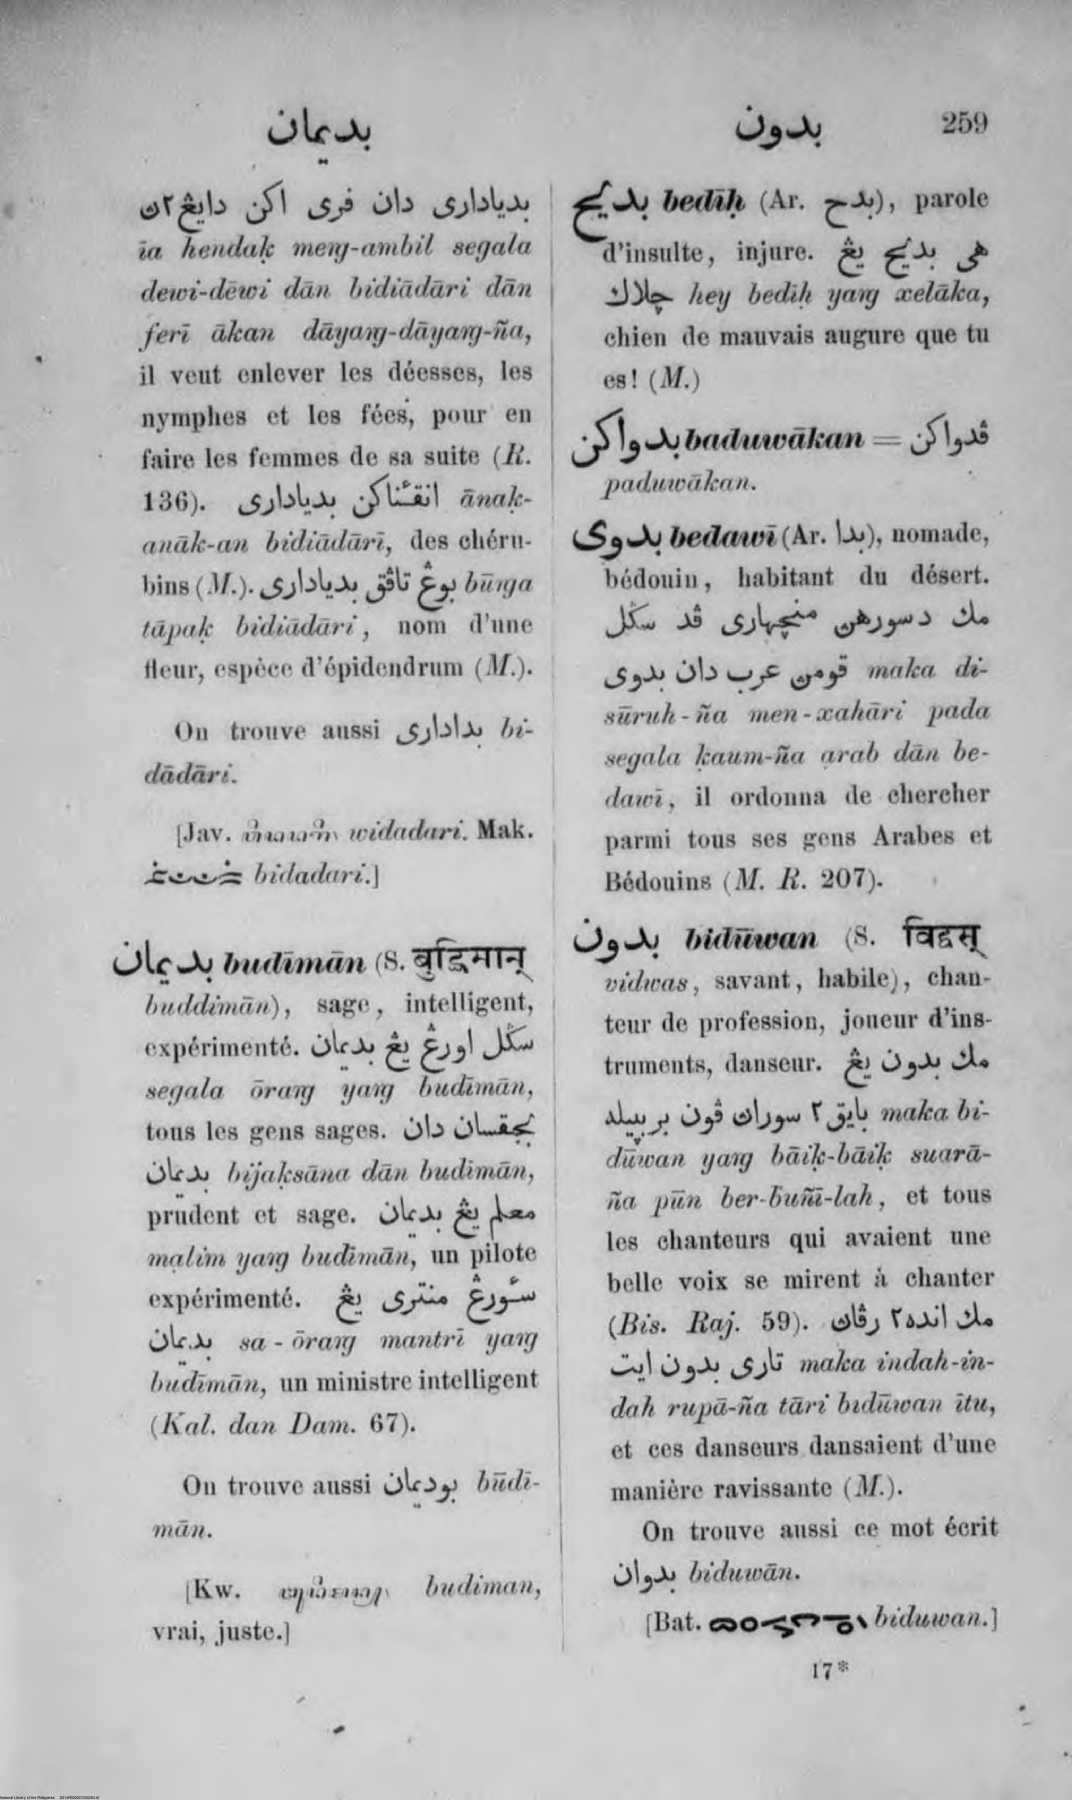 بديمان
بدون 259
بدياداري دان فري اکن دايڠ٢ن
īa hendaḳ meng-ambil segala
dewi-dēwi dān bidiādāri dān
ferī ākan dāyang-dāyang-ña,
il veut enlever les déesses, les
nymphes et les fées, pour en
faire les femmes de sa suite (R.
136). انقئناکن بدياداري ānaḳ-
anāk-an bidiādārī, des chéru-
bins (M.). بوڠ تاڤق بدياداري būnga
tāpaḳ bidiādāri, nom d'une
fleur, espèce d'épidendrum (M.).
On trouve aussi بداداري bi-
dādāri.
[Jav. widadari. Mak.
bidadari.]
بديمان budīmān (S. बुद्धिमान्
buddimān), sage, intelligent,
expérimenté. سڬل اورڠ يڠ بديمان
segala ōrang yang budīmān,
tous les gens sages. بجقسان دان
بديمان bijaḳsāna dān budīmān,
prudent et sage. معلم يڠ بديمان
malim yang budīmān, un pilote
expérimenté. سئورڠ منتري يڠ
بديمان sa-ōrang mantrī yang
budīmān, un ministre intelligent
(Kal. dan Dam. 67).
On trouve aussi بوديمان būdī-
mān.
[Kw. budiman,
vrai, juste.]
بديح bedīḥ (Ar. بدح), parole
d'insulte, injure. هي بديح يڠ
چلاك hey bedīḥ yang xelāka,
chien de mauvais augure que tu
es! (M.)
بدواکن baduwākan = ڤدواکن
paduwākan.
بدوي bedawī (Ar. بدا), nomade,
bédouin, habitant du désert.
مك دسورهن منچهاري ڤد سڬل
قومن عرب دان بدوي maka di-
sūruh-ña men-xahāri pada
segala ḳaum-ña arab dān be-
dawī, il ordonna de chercher
parmi tous ses gens Arabes et
Bédouins (M. R. 207).
بدون bidūwan (S. विद्वस्
vidwas, savant, habile), chan-
teur de profession, joueur d'ins-
truments, danseur. مك بدون يڠ
بايق٢ سوراڽ ڤون بربڽيله maka bi-
dūwan yang bāiḳ-bāiḳ suarā-
ña pūn ber-buñī-lah, et tous
les chanteurs qui avaient une
belle voix se mirent à chanter
(Bis. Raj. 59). مك انده٢ رڤاڽ
تاري بدون ايت maka indah-in-
dah rupā-ña tāri bidūwan ītu,
et ces danseurs dansaient d'une
manière ravissante (M.).
On trouve aussi ce mot écrit
بدوان biduwān.
[Bat. biduwan.]
17*